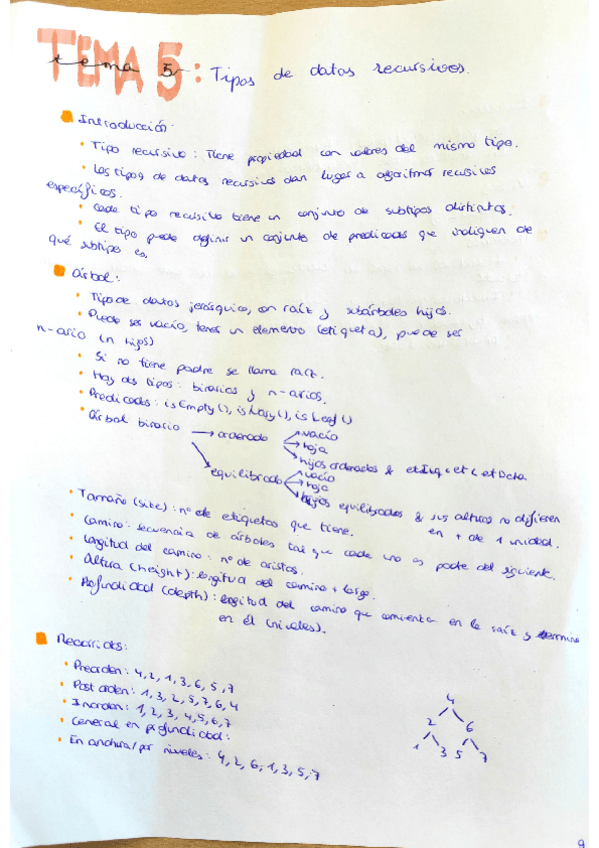 TEMA 5: Tipos de datos recursivos.
tema 5
Introducción:
Tipo recursivo: Tiene propiedad con valores del mismo tipo.
Los tipos de datos recursivos dan lugar a algoritmos recusivos
específicos.
Cada tipo recursivo tiene un conjunto de subtipos distintos.
El tipo puede definir un conjunto de predicados que indiquen de
qué subtipo es.
Árbol:
Tipo de datos jerárquico, con raíz y subárboles hijos.
Puede ser vacío, tener un elemento (etiqueta), puede ser
n-ario (n hijos)
Si no tiene padre se llama raíz.
Hay dos tipos: binarios y n-arios.
Predicados: isEmpty(), isLeaf()
Árbol binario
ordenado
vacío
hoja
hijos ordenados & etIzq < et < etDcha
equilibrado
vacío
hoja
hijos equilibrados & sus alturas no difieren
en + de 1 unidad.
Tamaño (size): nº de etiquetas que tiene.
Camino: secuencia de árboles tal que cada uno es padre del siguiente.
Longitud del camino: nº de aristas.
Altura (height): longitud del camino + largo.
Profundidad (depth): longitud del camino que comienza en la raíz y termina
en él (niveles).
Recorridos:
Preorden: 4, 2, 1, 3, 6, 5, 7
Postorden: 1, 3, 2, 5, 7, 6, 4
Inorden: 1, 2, 3, 4, 5, 6, 7
General en profundidad:
En anchura/por niveles: 4, 2, 6, 1, 3, 5, 7
4
2 6
1 3 5 7
9